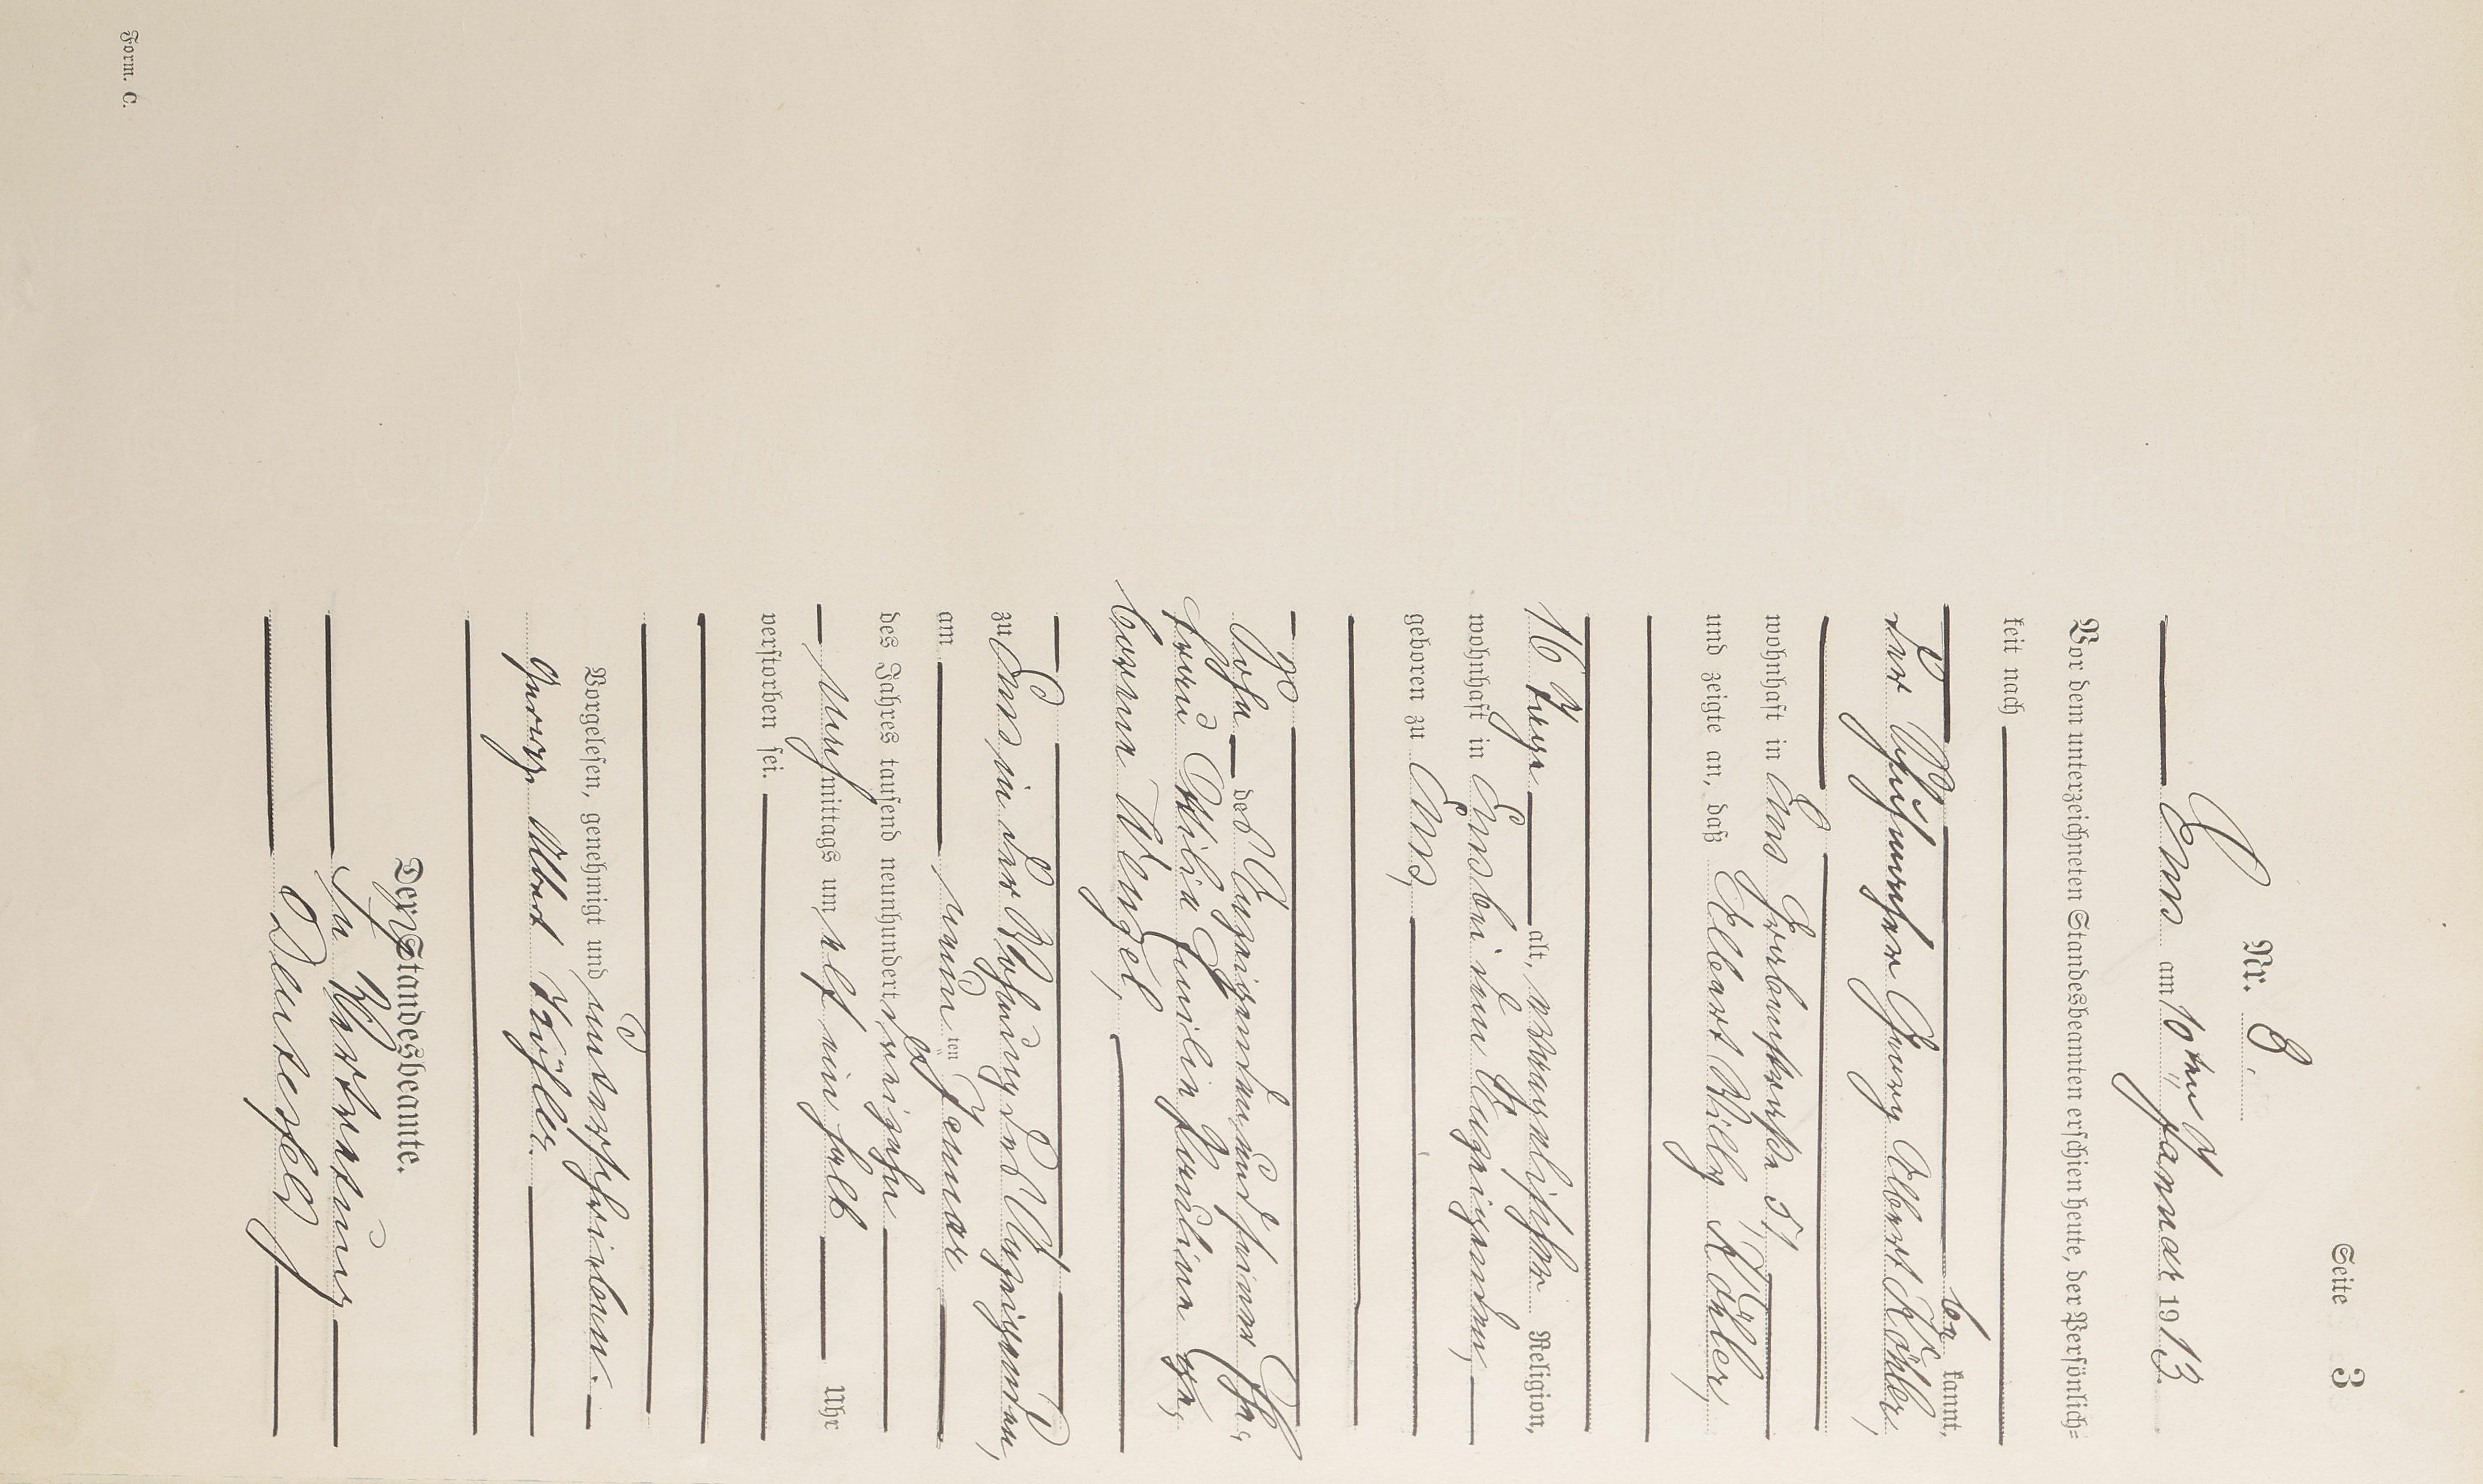 Seite 3
Nr. 8.
Ems am 10ten Januar 1913.
Vor dem unterzeichneten Standesbeamten erschien heute, der Persönlich=
keit nach
be kannt,
der Schuhmacher Georg Albert Köhler,
wohnhaft in Ems, Grabenstraße 51,
und zeigte an, daß Elbert Willy Köhler,
16 Tage alt, evangelischer Religion,
wohnhaft in Ems bei dem Anzeigenden,
geboren zu Ems,
Sohn des Anzeigenden und seiner Ehe-
frau Ottilie Emilie Pauline ge-
borene Wenzel,
zu Ems in der Wohnung des Anzeigenden,
am neun ten Januar
des Jahres tausend neunhundert dreizehn
Nachmittags um elf ein halb Uhr
verstorben sei.
Vorgelesen, genehmigt und unterschrieben.
Georg Albert Köhler.
Der Standesbeamte.
In Vertretung